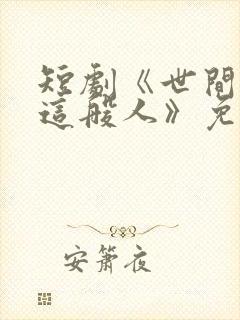 短劇《世間
這般人》免
安簫夜